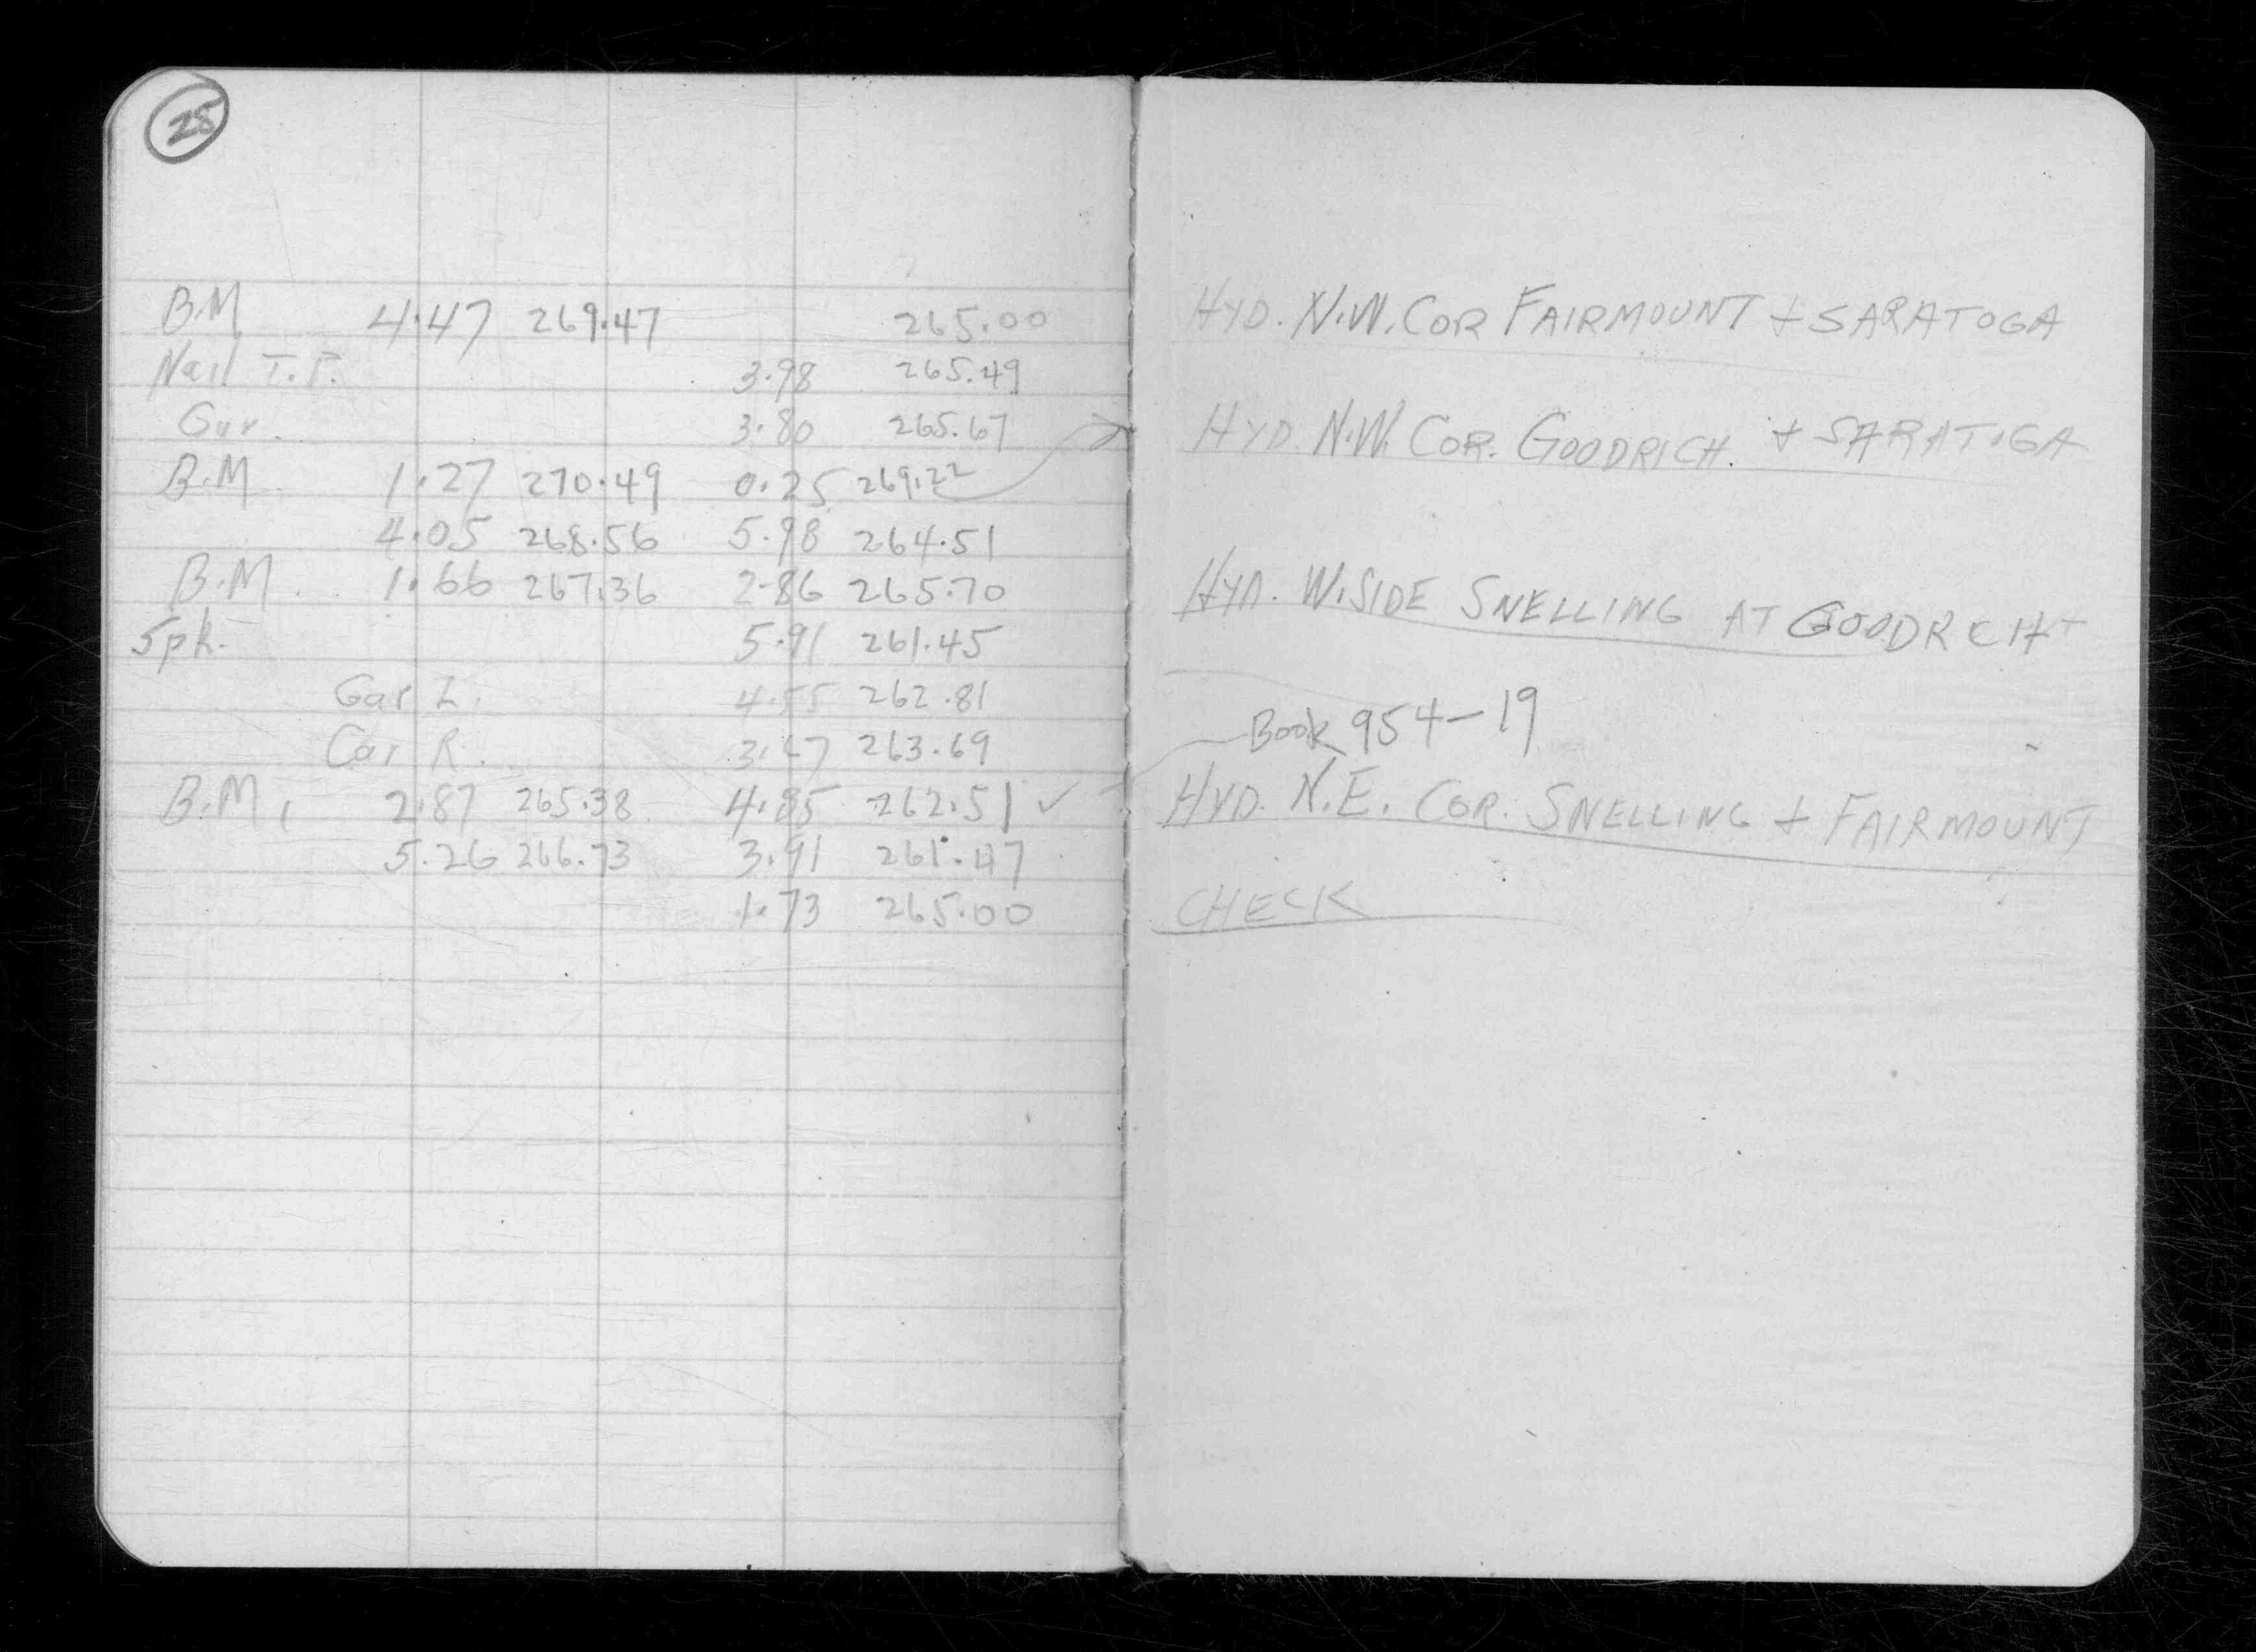 25
BM 4.47 269.47 265.00
Nail T.P. 3.98 265.49
Gar. 3.80 265.67
B.M. 1.27 270.49 0.25 269.22
4.05 268.56 5.98 264.51
B.M. 1.66 267.36 2.86 265.70
Spk. 5.91 261.45
Gar L. 4.55 262.81
Gar R. 3.67 263.69
B.M. 2.87 265.38 4.85 262.51 ✓
5.26 266.73 3.91 261.47
1.73 265.00
HYD. N.W. COR FAIRMOUNT + SARATOGA
HYD. N.W. COR. GOODRICH. + SARATOGA
HYD. W. SIDE SNELLING AT GOODRCH
Book 954-19
HYD. N.E. COR. SNELLING + FAIRMOUNT
CHECK